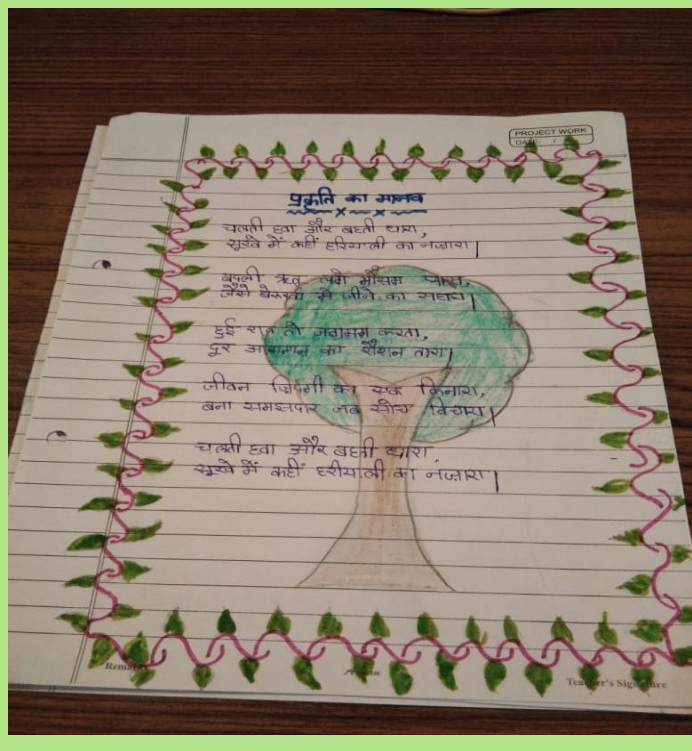 PROJECT WORK
DATE / /
प्रकृति का मानव
चलती हवा और बहती धारा,
सूखे में कहीं हरियाली का नज़ारा|
बदली ऋतु लगे मौसम प्यारा,
जैसे बेरुखी से जीने का सहारा|
हुई रात तो जगमग करता,
दूर आसमान का रौशन तारा|
जीवन ज़िंदगी का एक किनारा,
बना समझदार जब सोच विचारा|
चलती हवा और बहती धारा,
सूखे में कहीं हरीयाली का नज़ारा|
Remarks
Teacher's Signature